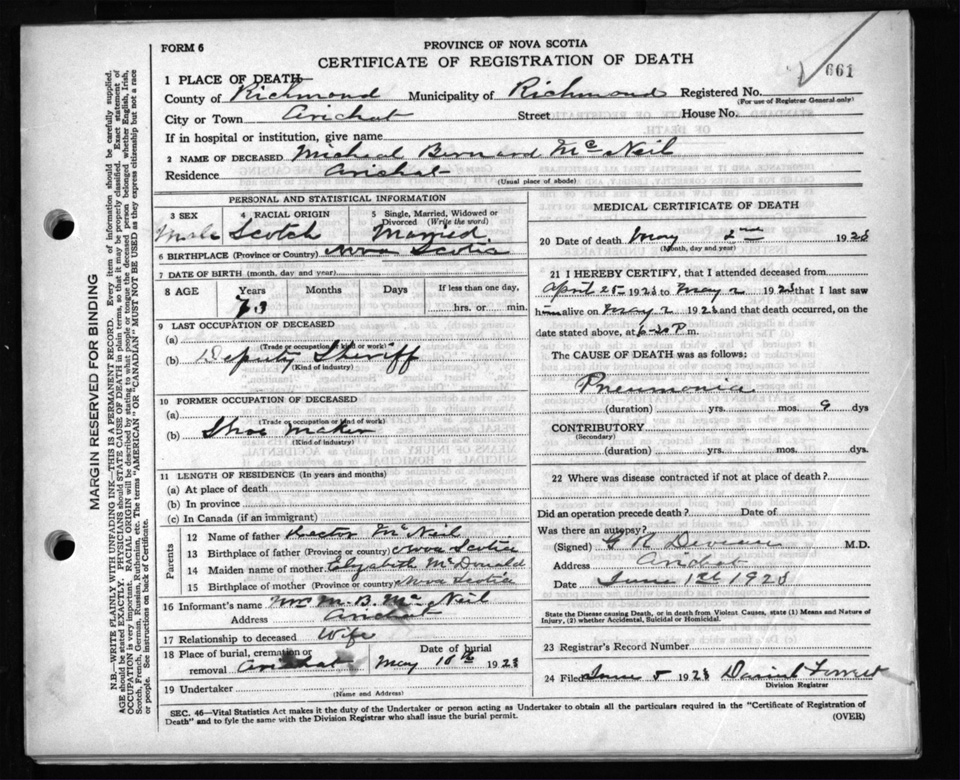 FORM 6
PROVINCE OF NOVA SCOTIA
CERTIFICATE OF REGISTRATION OF DEATH
661
1 PLACE OF DEATH
County of Richmond Municipality of Richmond Registered No.
(For use of Registrar General only)
City or Town Arichat Street House No.
If in hospital or institution, give name
2 NAME OF DECEASED Michael Bernard McNeil
Residence Arichat
(Usual place of abode)
PERSONAL AND STATISTICAL INFORMATION
3 SEX 4 RACIAL ORIGIN 5 Single, Married, Widowed or Divorced (Write the word)
Male Scotch Married
6 BIRTHPLACE (Province or Country) Nova Scotia
7 DATE OF BIRTH (month, day and year)
8 AGE Years Months Days If less than one day,
73 hrs. or min.
9 LAST OCCUPATION OF DECEASED
(a)
(Trade or occupation or kind of work)
(b) Deputy Sheriff
(Kind of industry)
10 FORMER OCCUPATION OF DECEASED
(a)
(Trade or occupation or kind of work)
(b) Shoe Maker
(Kind of industry)
11 LENGTH OF RESIDENCE (In years and months)
(a) At place of death
(b) In province
(c) In Canada (if an immigrant)
Parents
12 Name of father Hector McNeil
13 Birthplace of father (Province or country) Nova Scotia
14 Maiden name of mother Elyzabeth McDonald
15 Birthplace of mother (Province or country) Nova Scotia
16 Informant's name Mrs M. B. Mc Neil
Address Arichat
17 Relationship to deceased Wife
18 Place of burial, cremation or Date of burial
removal Arichat May 10th 1928
19 Undertaker
(Name and Address)
MEDICAL CERTIFICATE OF DEATH
20 Date of death May 2nd 1928
(Month, day and year)
21 I HEREBY CERTIFY, that I attended deceased from
April 25 1928 to May 2 1928 that I last saw
him alive on May 2 1928 and that death occurred, on the
date stated above, at P m.
The CAUSE OF DEATH was as follows:
Pneumonia
(duration) yrs. mos. 9 dys
CONTRIBUTORY
(Secondary)
(duration) yrs. mos. dys.
22 Where was disease contracted if not at place of death?
Did an operation precede death? Date of
Was there an autopsy?
(Signed) M.D.
Address Arichat
Date June 1st 1928
State the Disease causing Death, or in death from Violent Causes, state (1) Means and Nature of
Injury, (2) whether Accidental, Suicidal or Homicidal.
23 Registrar's Record Number
24 Filed June 5 1928
Division Registrar
SEC. 46—Vital Statistics Act makes it the duty of the Undertaker or person acting as Undertaker to obtain all the particulars required in the "Certificate of Registration of
Death" and to fyle the same with the Division Registrar who shall issue the burial permit.
(OVER)
MARGIN RESERVED FOR BINDING
N.B.—WRITE PLAINLY WITH UNFADING INK—THIS IS A PERMANENT RECORD. Every item of information should be carefully supplied.
AGE should be stated EXACTLY. PHYSICIANS should STATE CAUSE OF DEATH in plain terms, so that it may be properly classified. Exact statement of
OCCUPATION is very important. RACIAL ORIGIN will be described by stating to what people or tongue the deceased person belonged whether English, Irish,
Scotch, French, German, Russian, Ruthenian, etc. The terms "AMERICAN" OR "CANADIAN" MUST NOT BE USED as they express citizenship but not a race
or people. See instructions on back of Certificate.